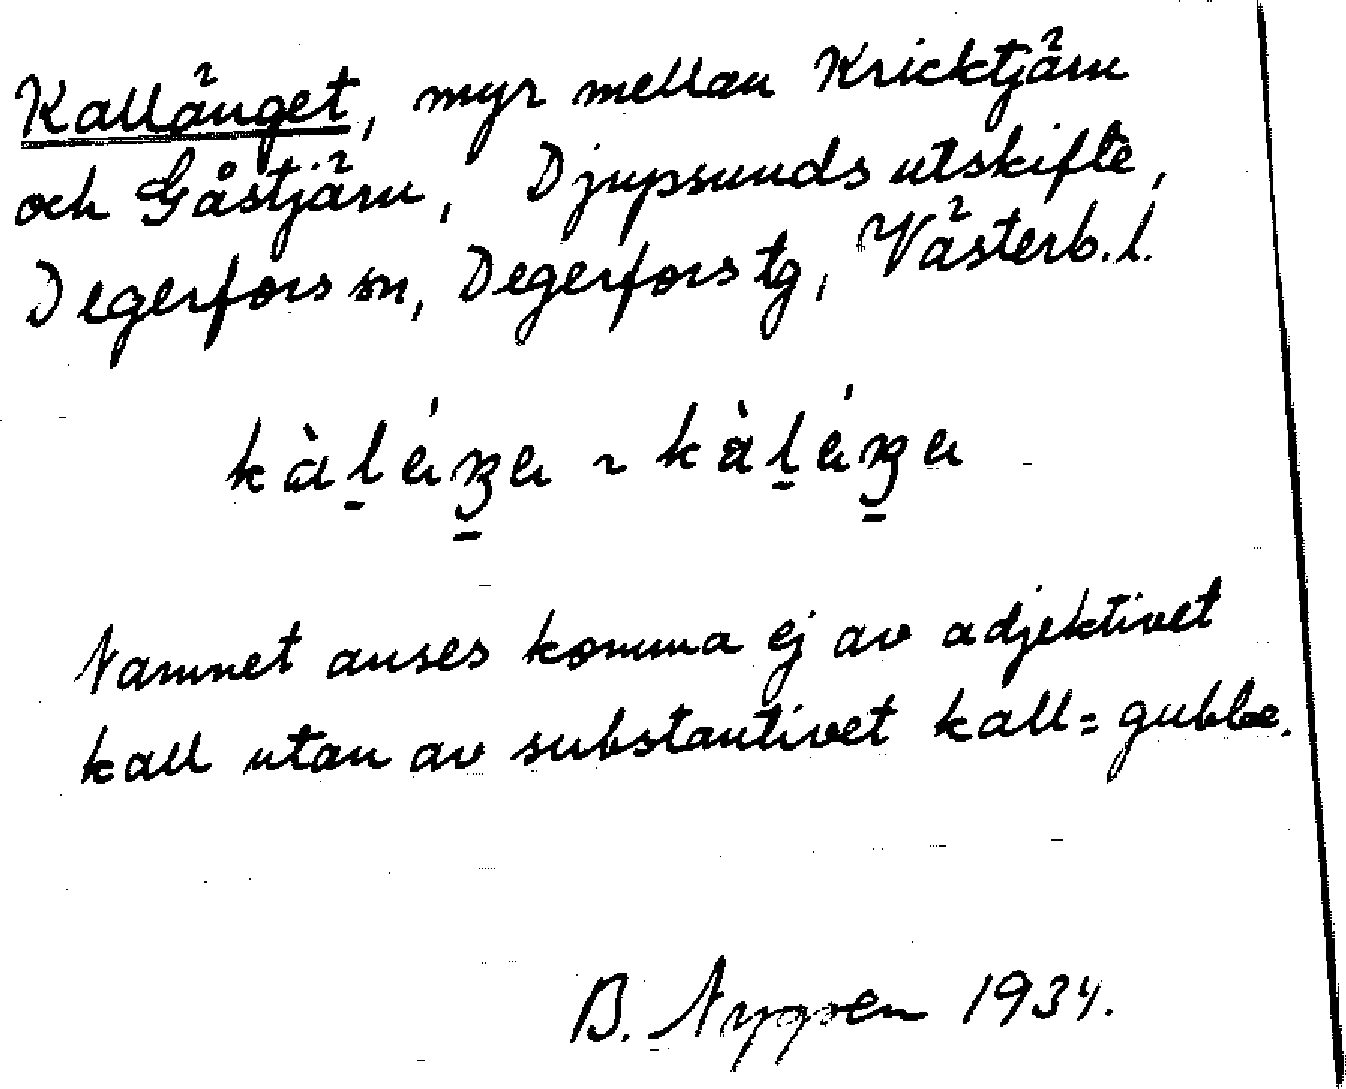 Kallänget, myr mellan Kricktjärn
och Gåstjärn, Djupsunds utskifte,
Degerfors sn, Degerfors tg, Västerb. l.
Namnet anses komma ej av adjektivet
kall utan av substantivet kall = gubbe.
B. Nygren 1934.